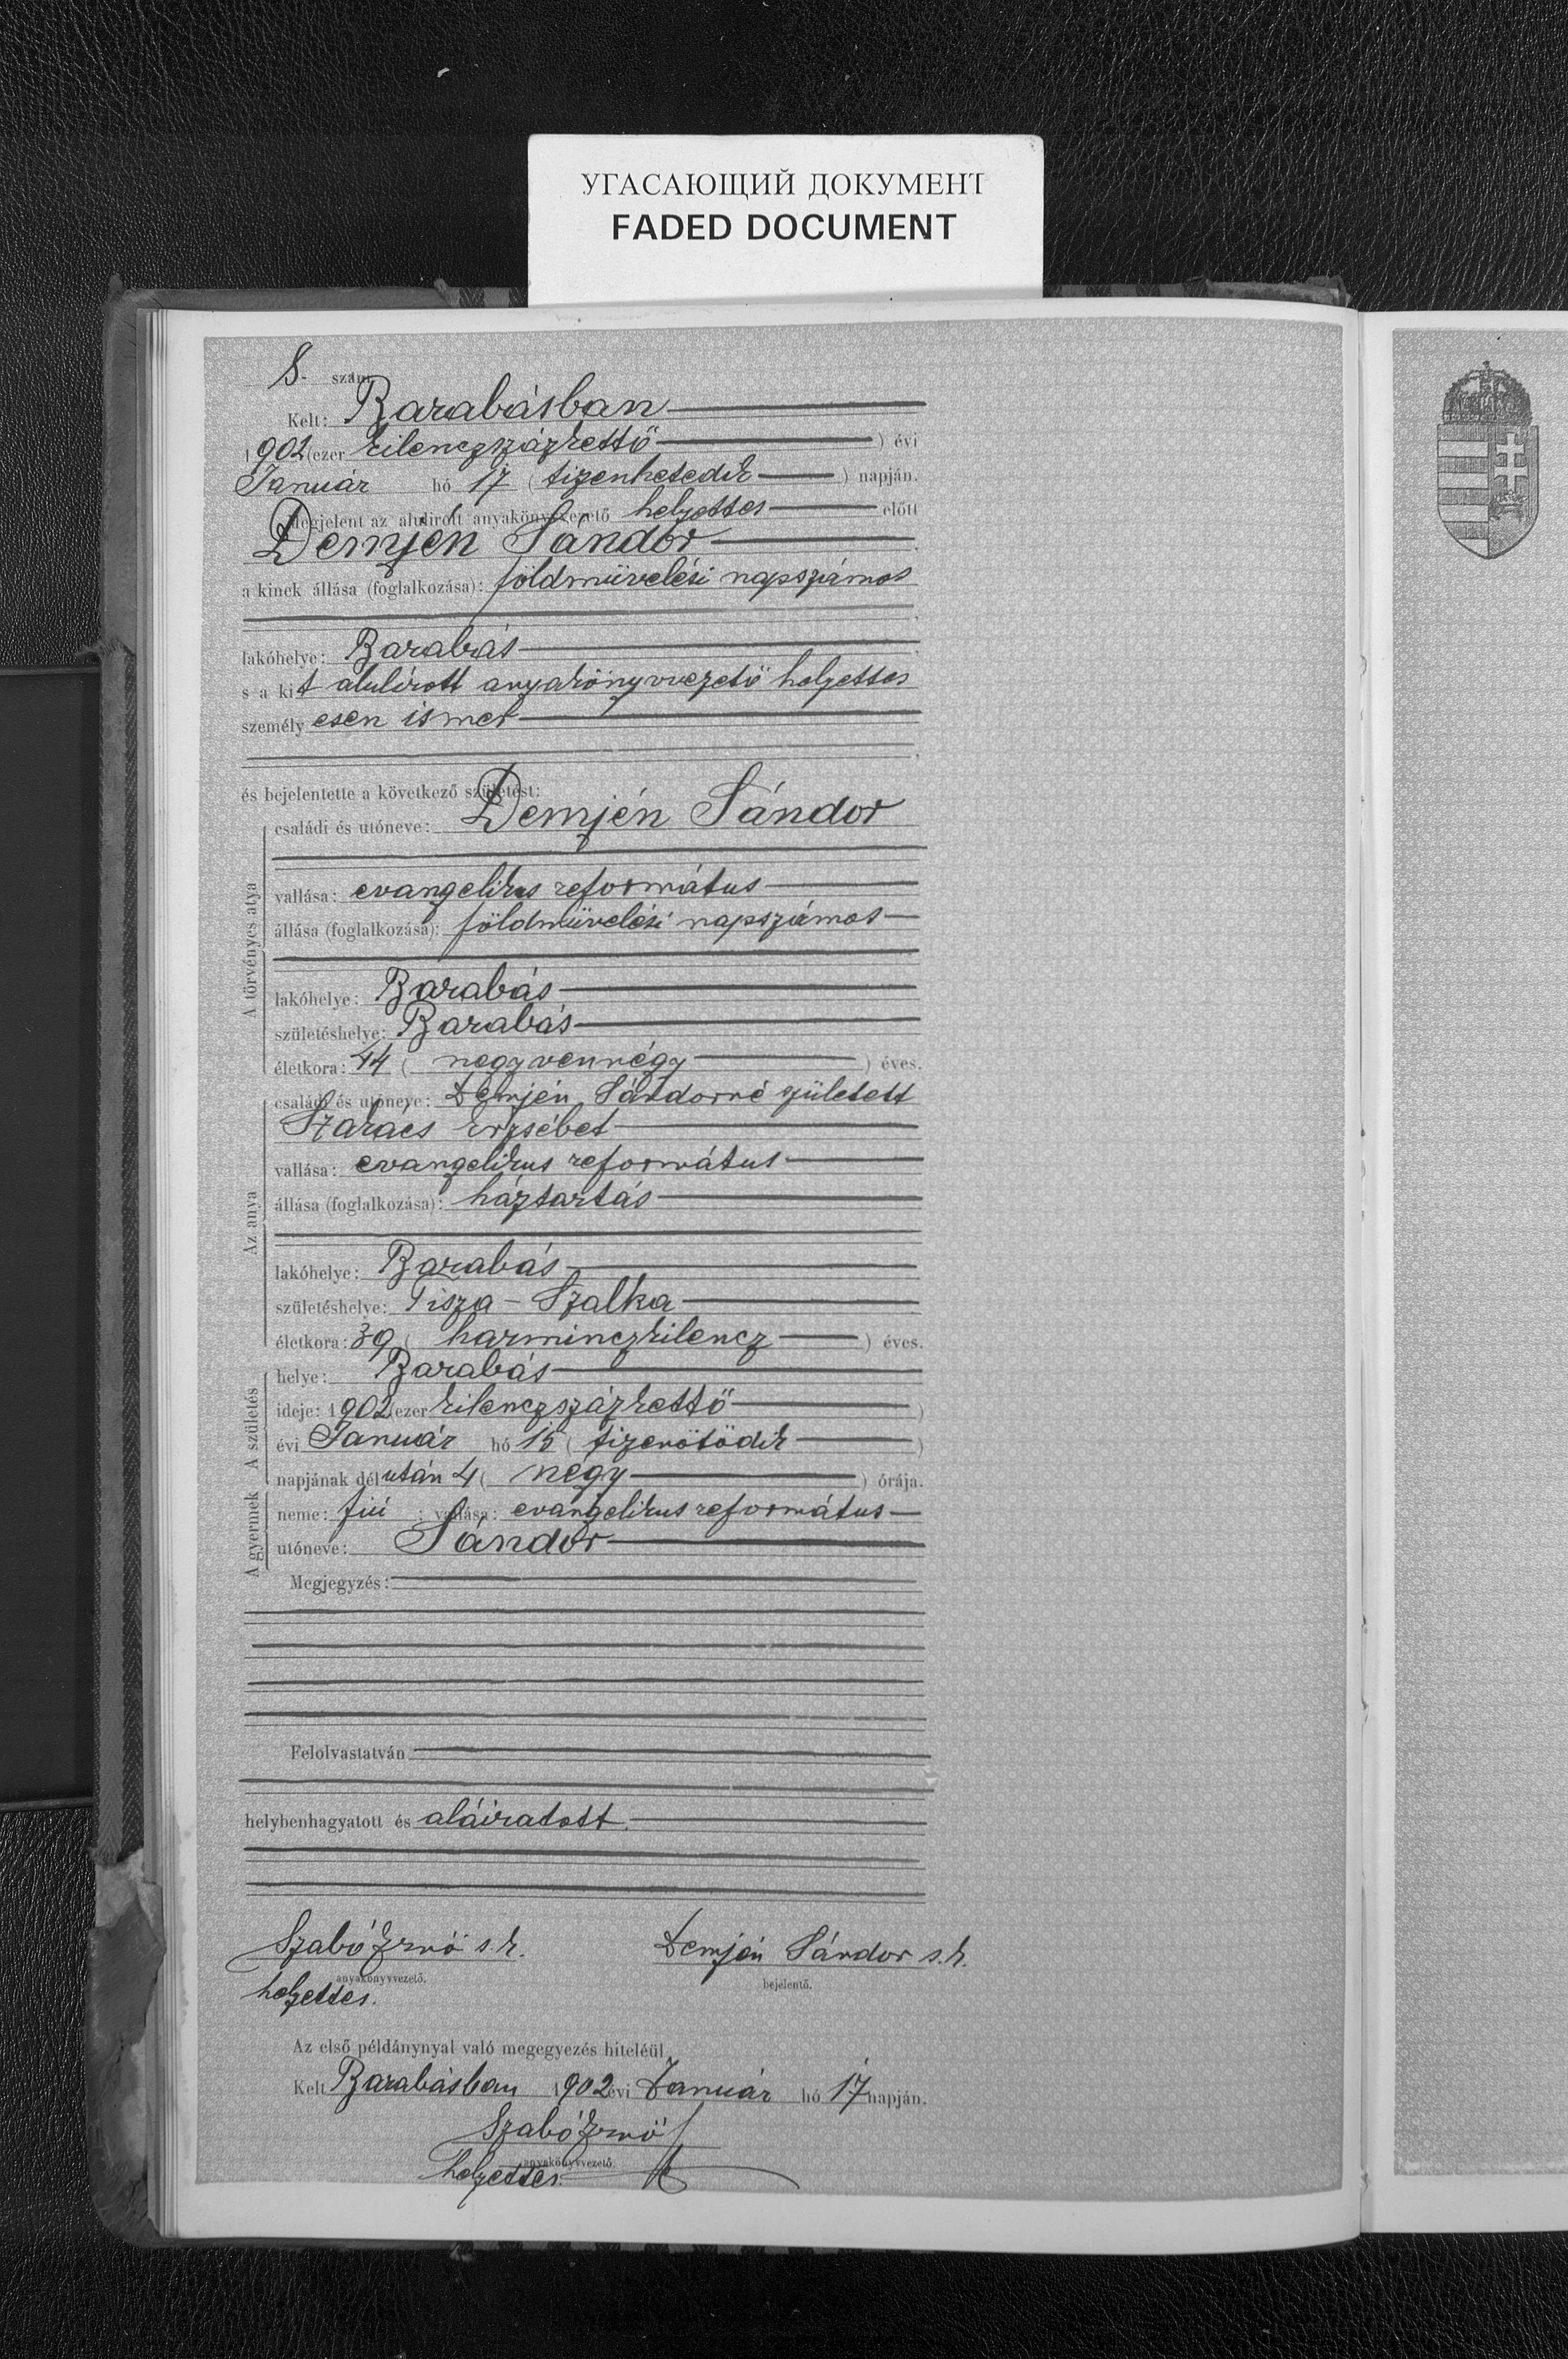 УГАСАЮЩИЙ ДОКУМЕНТ
FADED DOCUMENT
8. szám
Kelt: Barabásban
1902 (ezer kilenczszázkettő ) évi
Január hó 17 ( tizenhetedik ) napján.
Megjelent az alulirott anyakönyvvezető helyettes előtt
Demjén Sándor
a kinek állása (foglalkozása): földmüvelési napszámos
lakóhelye: Barabás
s a kit alulírott anyakönyvvezető helyettes
személyesen ismer
és bejelentette a következő születést:
A törvényes atya
családi és utóneve: Demjén Sándor
vallása: evangelikus református
állása (foglalkozása): földmüvelési napszámos
lakóhelye: Barabás
születéshelye: Barabás
életkora: 44 ( negyvennégy ) éves.
Az anya
családi és utóneve: Demjén Sándorné született
Erzsébet
vallása: evangelikus református
állása (foglalkozása): háztartás
lakóhelye: Barabás
születéshelye: Tisza-Szalka
életkora: 39 ( harminczkilencz ) éves.
A születés
helye: Barabás
ideje: 1902 (ezer kilenczszázkettő )
évi Január hó 15 ( tizenötödik )
napjának délután 4 ( négy ) órája.
A gyermek
neme: fiú ; vallása: evangelikus református
utóneve: Sándor
Megjegyzés:
Felolvastatván
helybenhagyatott és aláiratott.
Szabó Ernő s. k. Demjén Sándor s. k.
anyakönyvvezető. bejelentő.
helyettes.
Az első példánynyal való megegyezés hiteléül
Kelt Barabásban 1902 évi Január hó 17 napján.
Szabó Ernő
anyakönyvvezető.
helyettes.